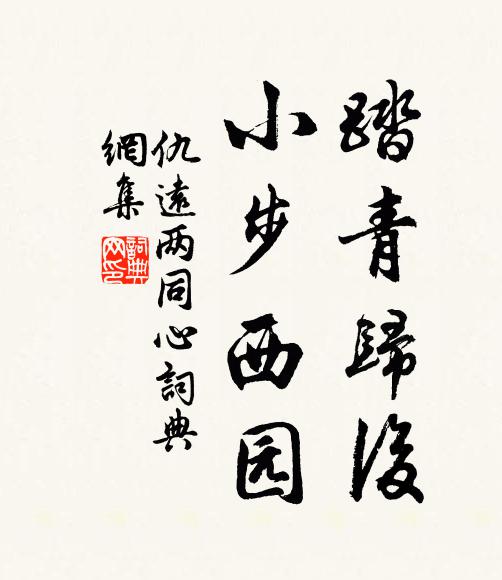 踏青歸後
小步西园
仇遠两同心詞典
網集
詞典
网印